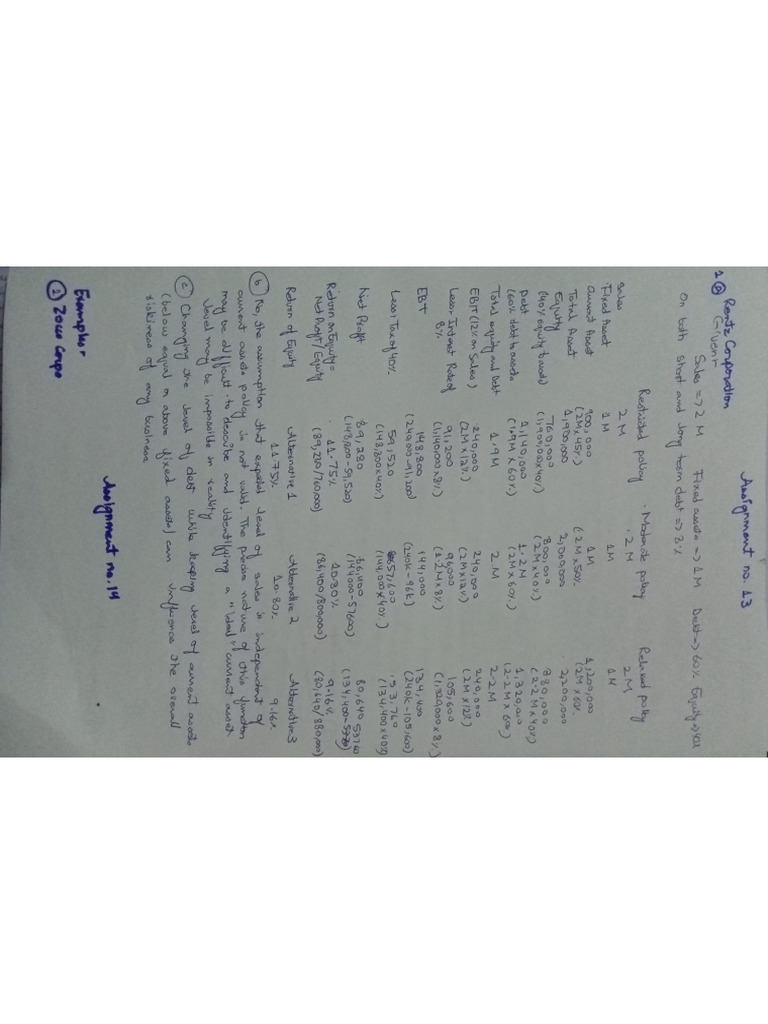 Assignment no. 13
1 (a) Rentz Corporation
Given:
Sales => 2 M Fixed assets => 1 M Debt => 60% Equity => 40%
On both short and long term debt => 8%
Restricted policy Moderate policy Relaxed policy
Sales 2 M 2 M 2 M
Fixed Asset 1 M 1 M 1 M
Current Asset 900,000 1 M 1,200,000
(2M x 45%) (2 M x 50%) (2M x 60%)
Total Asset 1,900,000 2,000,000 2,200,000
Equity 760,000 800,000 880,000
(40% equity to assets) (1,900,000 x 40%) (2 M x 40%) (2.2 M x 40%)
Debt 1,140,000 1.2 M 1,320,000
(60% debt to assets) (1.9M x 60%) (2M x 60%) (2.2 M x 60%)
Total equity and Debt 1.9 M 2 M 2.2 M
EBIT (12% on Sales) 240,000 240,000 240,000
(2M x 12%) (2M x 12%) (2M x 12%)
Less Interest Rate of 91,200 96000 105,600
8% (1,140,000 x 8%) (1.2 M x 8%) (1,320,000 x 8%)
EBT 148,800 144,000 134,400
(240,000 - 91,200) (240K - 96K) (240K - 105,600)
Less Tax of 40% 59,520 57,600 53,760
(148,800 x 40%) (144,000 x 40%) (134,400 x 40%)
Net Profit 89,280 86,400 80,640
(148,800 - 59,520) (144,000 - 57600) (134,400 - 53760)
Return on Equity = 11.75% 10.80% 9.16%
Net Profit / Equity (89,280/760,000) (86,400/800,000) (80,640/880,000)
Alternative 1 Alternative 2 Alternative 3
Return of Equity 11.75% 10.80% 9.16%
(b) No, the assumption that expected level of sales is independent of
current assets policy is not valid. The precise nature of this function
may be difficult to describe and identifying a "ideal" current asset
level may be impossible in reality
(c) Changing the level of debt while keeping level of current assets
(below equal or above fixed assets) can influence the overall
riskiness of any business.
Assignment no. 14
Examples:
(1)